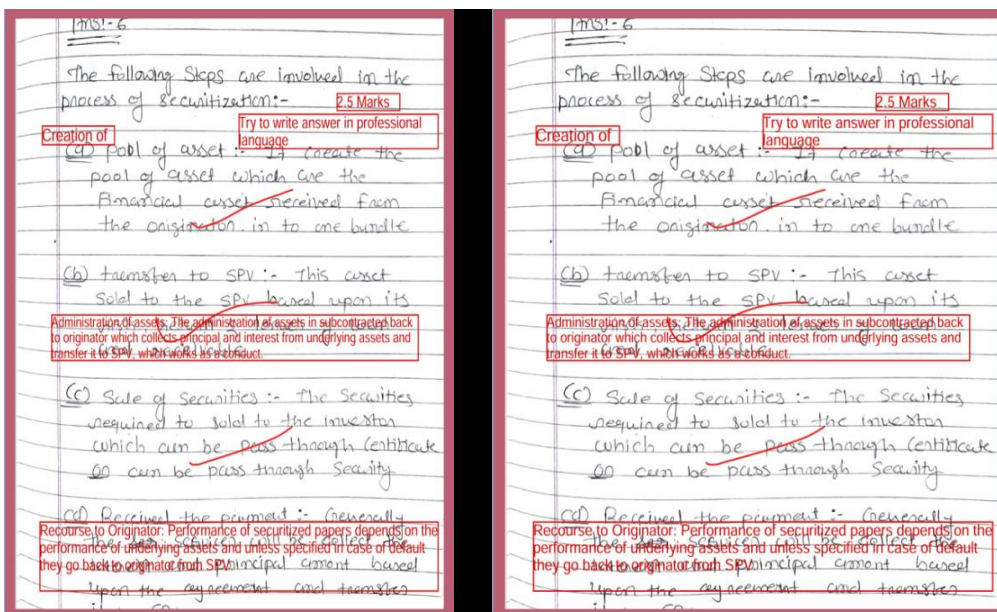 Ans!- 6
The following Steps are involved in the
process of Securitization:-
2.5 Marks
Try to write answer in professional
language
Creation of
(a) pool of asset :- It create the
pool of asset which are the
Financial asset received from
the originator. in to one bundle
(b) transfer to SPV :- This asset
Sold to the SPV based upon its
Administration of assets: The administration of assets in subcontracted back
to originator which collects principal and interest from underlying assets and
transfer it to SPV, which works as a conduct.
(c) Sale of Securities :- The Securities
required to sold to the investor
which can be pass through Certificate
or can be pass through Security
(d) Received the payment :- Generally
Recourse to Originator: Performance of securitized papers depends on the
performance of underlying assets and unless specified in case of default
they go back to originator from SPV.
principal amont based
upon the agreement and transfer
Ans!- 6
The following Steps are involved in the
process of Securitization:-
2.5 Marks
Try to write answer in professional
language
Creation of
(a) pool of asset :- It create the
pool of asset which are the
Financial asset received from
the originator. in to one bundle
(b) transfer to SPV :- This asset
Sold to the SPV based upon its
Administration of assets: The administration of assets in subcontracted back
to originator which collects principal and interest from underlying assets and
transfer it to SPV, which works as a conduct.
(c) Sale of Securities :- The Securities
required to sold to the investor
which can be pass through Certificate
or can be pass through Security
(d) Received the payment :- Generally
Recourse to Originator: Performance of securitized papers depends on the
performance of underlying assets and unless specified in case of default
they go back to originator from SPV.
principal amont based
upon the agreement and transfer